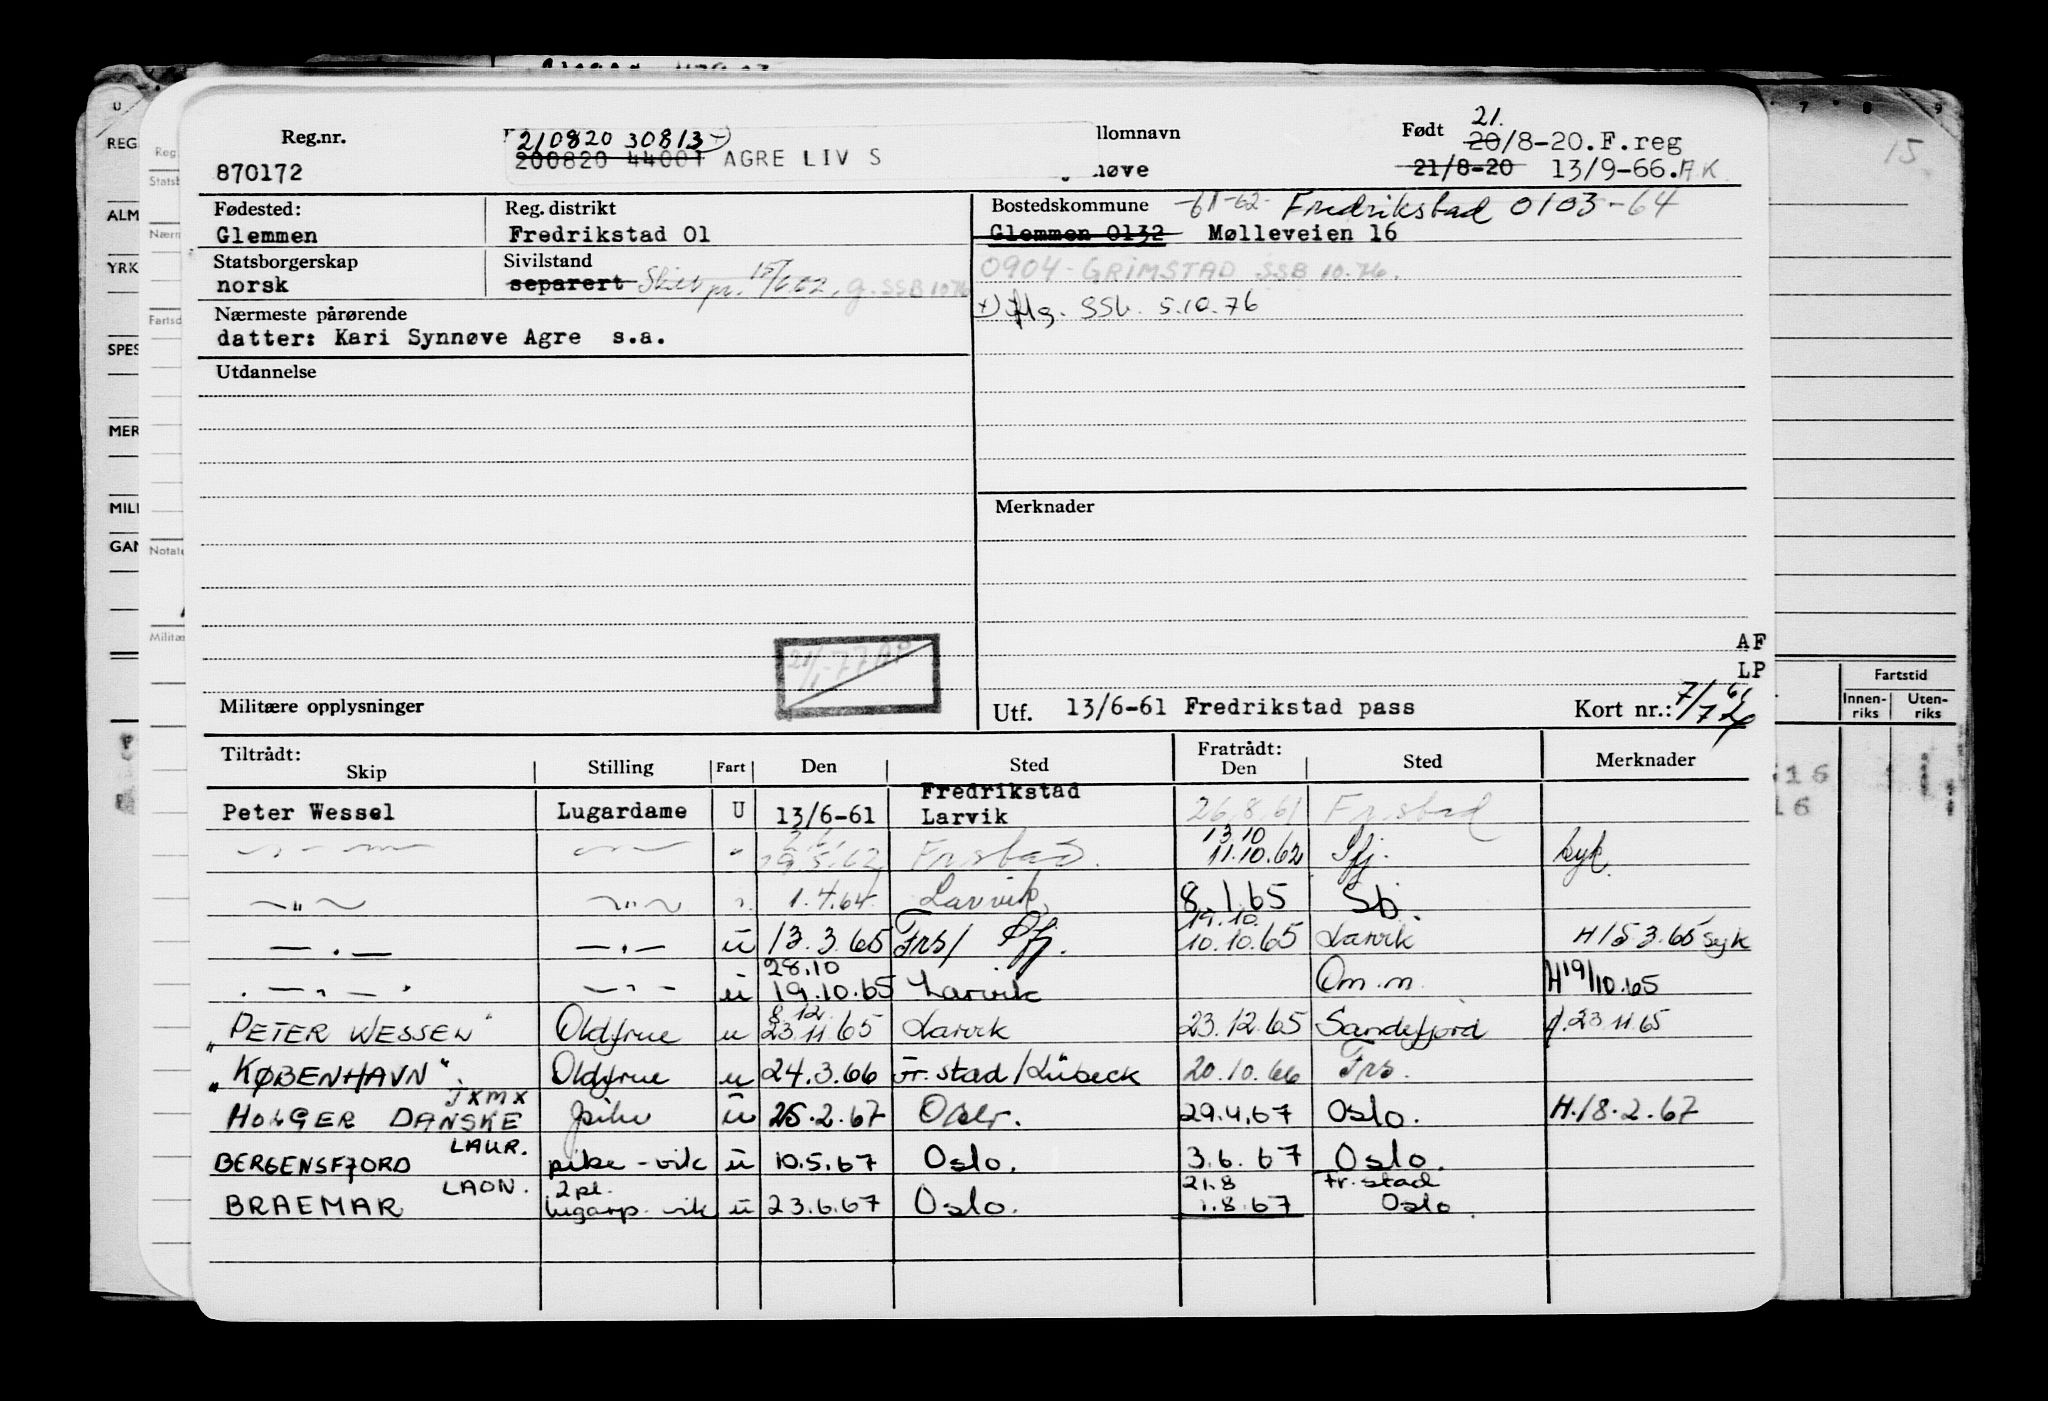 Reg.nr. 210820 30813 +) llomnavn Født 21.
870172 200820 44001 AGRE LIV S nøve 20/8-20.F.reg
21/8-20 13/9-66. A.K.
15
Fødested: Reg. distrikt Bostedskommune -61-62- Fredrikstad 0103-64
Glemmen Fredrikstad 01 Glemmen 0132 Mølleveien 16
Statsborgerskap Sivilstand 0904-GRIMSTAD SSB 10.76.
norsk separert Skilt pr. 15/6.62, g. SSB 1076
Nærmeste pårørende +) flg. SSb. 5.10.76
datter: Kari Synnøve Agre s.a.
Utdannelse
Merknader
AF
LP
Militære opplysninger Utf. 13/6-61 Fredrikstad pass Kort nr.:
Tiltrådt: Fratrådt:
Skip Stilling Fart Den Sted Den Sted Merknader
Peter Wessel Lugardame U 13/6-61 Fredrikstad Larvik 26.8.61 Fr.stad
— " — — " — " 29.5.62 Frstad. 13.10 11.10.62 Sfj. syk.
— " — — " — 1.4.64 Larvik, 8.1.65 Sb.
— " — — " — u 13.3.65 Frs/ Sfj. 19.10. 10.10.65 Larvik H/5 3.65 syk
— " — — " — u 28.10 19.10.65 Larvik Om.m. H 19/10.65
"PETER WESSEL" Oldfrue u 8.12. 23.11.65 Larvik 23.12.65 Sandefjord H. 23.11.65
"KØBENHAVN". Oldfrue u 24.3.66 Fr.stad/Lübeck 20.10.66 Frs.
HOLGER DANSKE JXMX pike u 25.2.67 Oslo. 29.4.67 Oslo. H./8.2.67
BERGENSFJORD LAUR. pike-vik u 10.5.67 Oslo. 3.6.67 Oslo.
BRAEMAR LAON. 2pl. lugarp. vik u 23.6.67 Oslo. 21.8 1.8.67 Fr.stad Oslo.
REG
ALM
YRK
SPES
MER
MILI
GAN
Reg.
Statsb
Nærm
Fartsd
Notate
Militæ
7 8 9
Fartstid
Innenriks Utenriks